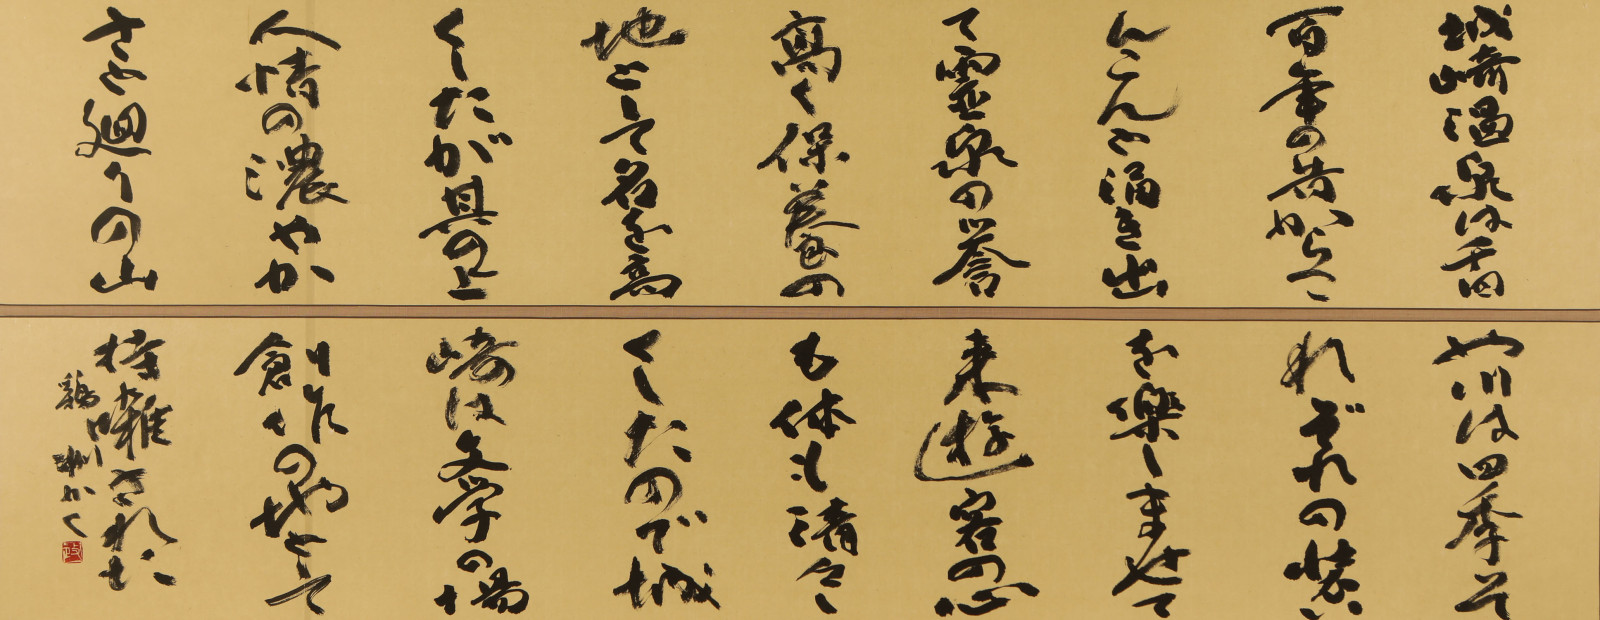 城崎温泉は千四
百年の昔からこ
んこんと涌き出
て霊泉の誉
高く保養の
地として名を高
くしたが其の上
人情の濃やか
さと廻りの山
や川は四季そ
れぞれの装い
を楽しませて
来遊客の心
も体も清々し
くしたので城
崎は文学の場
創作の地として
持囃された
鶏川かく
政